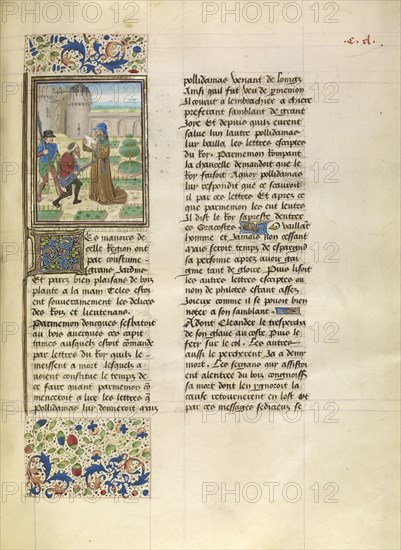 .C. xl.
Les manoirs de
celle Region ont
par coustume
grans Jardins
Et parcs bien plaisans de bois
plante a la main Et les estoi
ent souverainement les delices
des Rois et lieutenans.
Parmenion doncques sesbatoit
au bois avecques ces capi
taines ausquelz estoit comande
par lettres du Roy quilz le
meissent a mort lesquelz a
voient constitue le temps de
ce faire quant parmenion co
menceroit a lire les lettres q
Pollidamas luy donneroit
pollidamas venant de loingz
Ainsi quil fut veu de parmenion
Il courut a lembrachier a chiere
presentant samblant de grant
Joye Et depuis quilz eurent
salue lun lautre pollidamas
luy bailla les lettres escriptes
du Roy. Parmenion Rompant
la chancelle demandoit que le
Roy faisoit Aquoy pollidamas
luy respondit que ce scauroit
il par ces lettres Et apres ce
que parmenion les eut leutes
Il dist le Roy sapreste dentrer
es Oracostes Vaillant
homme et Jamais non cessant
mais seroit temps despargnier
sa personne apres avoir gai
gnie tant de gloire. Puis lisoit
les autres lettres escriptes au
nom de philotes estant assez
Joieux comme il se pouoit bien
noter a son samblant.
Adont Cleander le tresperche
de son glaive au coste. Puis le
fery sur le col. Les autres
aussi le percherent Ja a demy
mort. Les sergans qui assistoi
ent alentree du bois congnoissans
sa mort dont len ygnoroit la
cause retournerent en lost Et
par ces messages sedicieux se
PHOTO 12
PHOTO 12
PHOTO 12
PHOTO 12